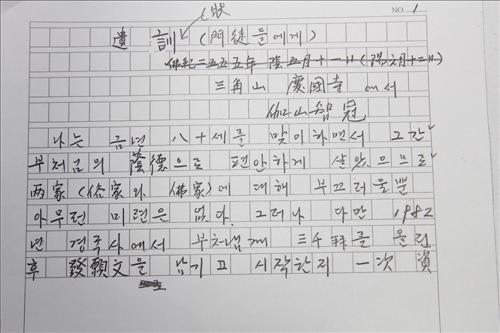 (狀
NO. 1
遺 訓 (門徒들에게)
佛紀二五五五年 陰五月十一日 (陽六月十二日)
三角山 慶國寺에서
伽山智冠
나는 금년 八十세를 맞이하면서 그간
부처님의 蔭德으로 편안하게 살았으므로
両家(俗家와 佛家)에 대해 부끄러울뿐
아무런 미련은 없다. 그러나 다만 1982
년 경국사에서 부처님께 三千拜를 올린
후 發願文을 남기고 시작한지 一次 資